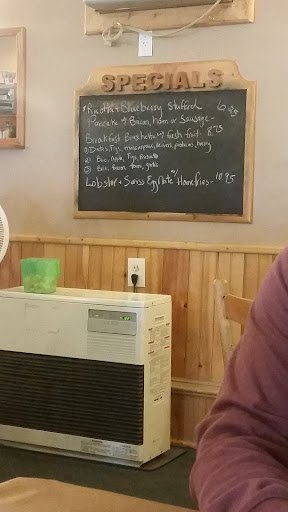 SPECIALS
*Ricotta + Blueberry Stuffed
Pancake w/ Bacon, Ham or Sausage-
Breakfast Bruschetta w/ fresh fruit- 8.75
1) Dates, Figs, mascarpone,
2) Brie, Apple, Figs,
3) Brie, Bacon,
Lobster + Swiss Egg Plate w/ Homefries- 10.95